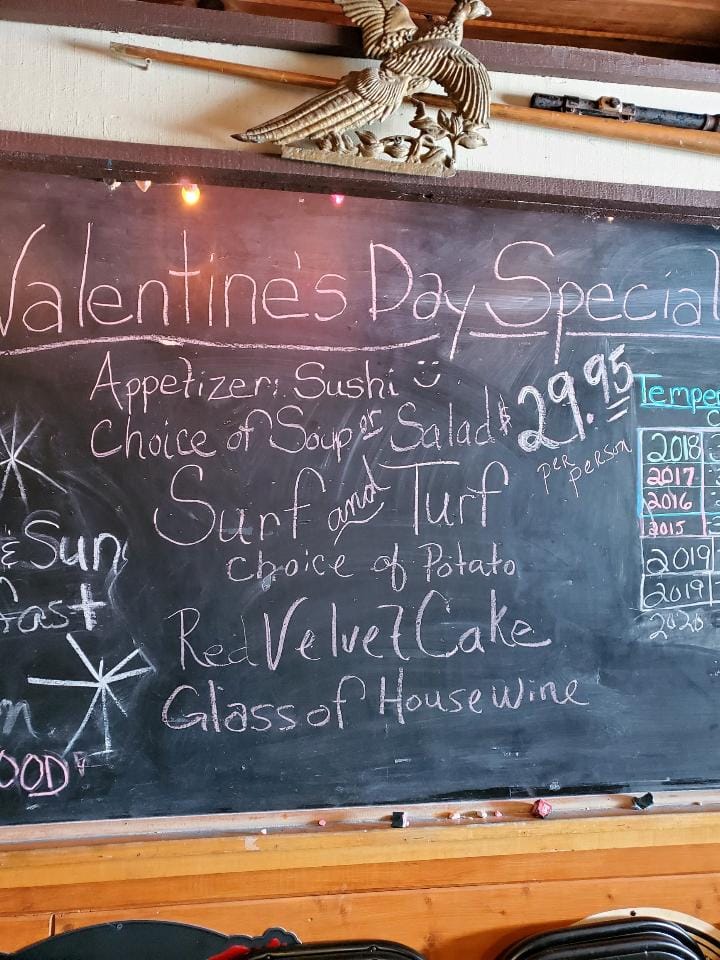 Valentine's Day Special
Appetizer: Sushi
Choice of Soup or Salad
$29.95
per person
Surf and Turf
Choice of Potato
Red Velvet Cake
Glass of House wine
& Sun
fast
OOD
Temper
2018
2017
2016
2015
2019
2019
2020